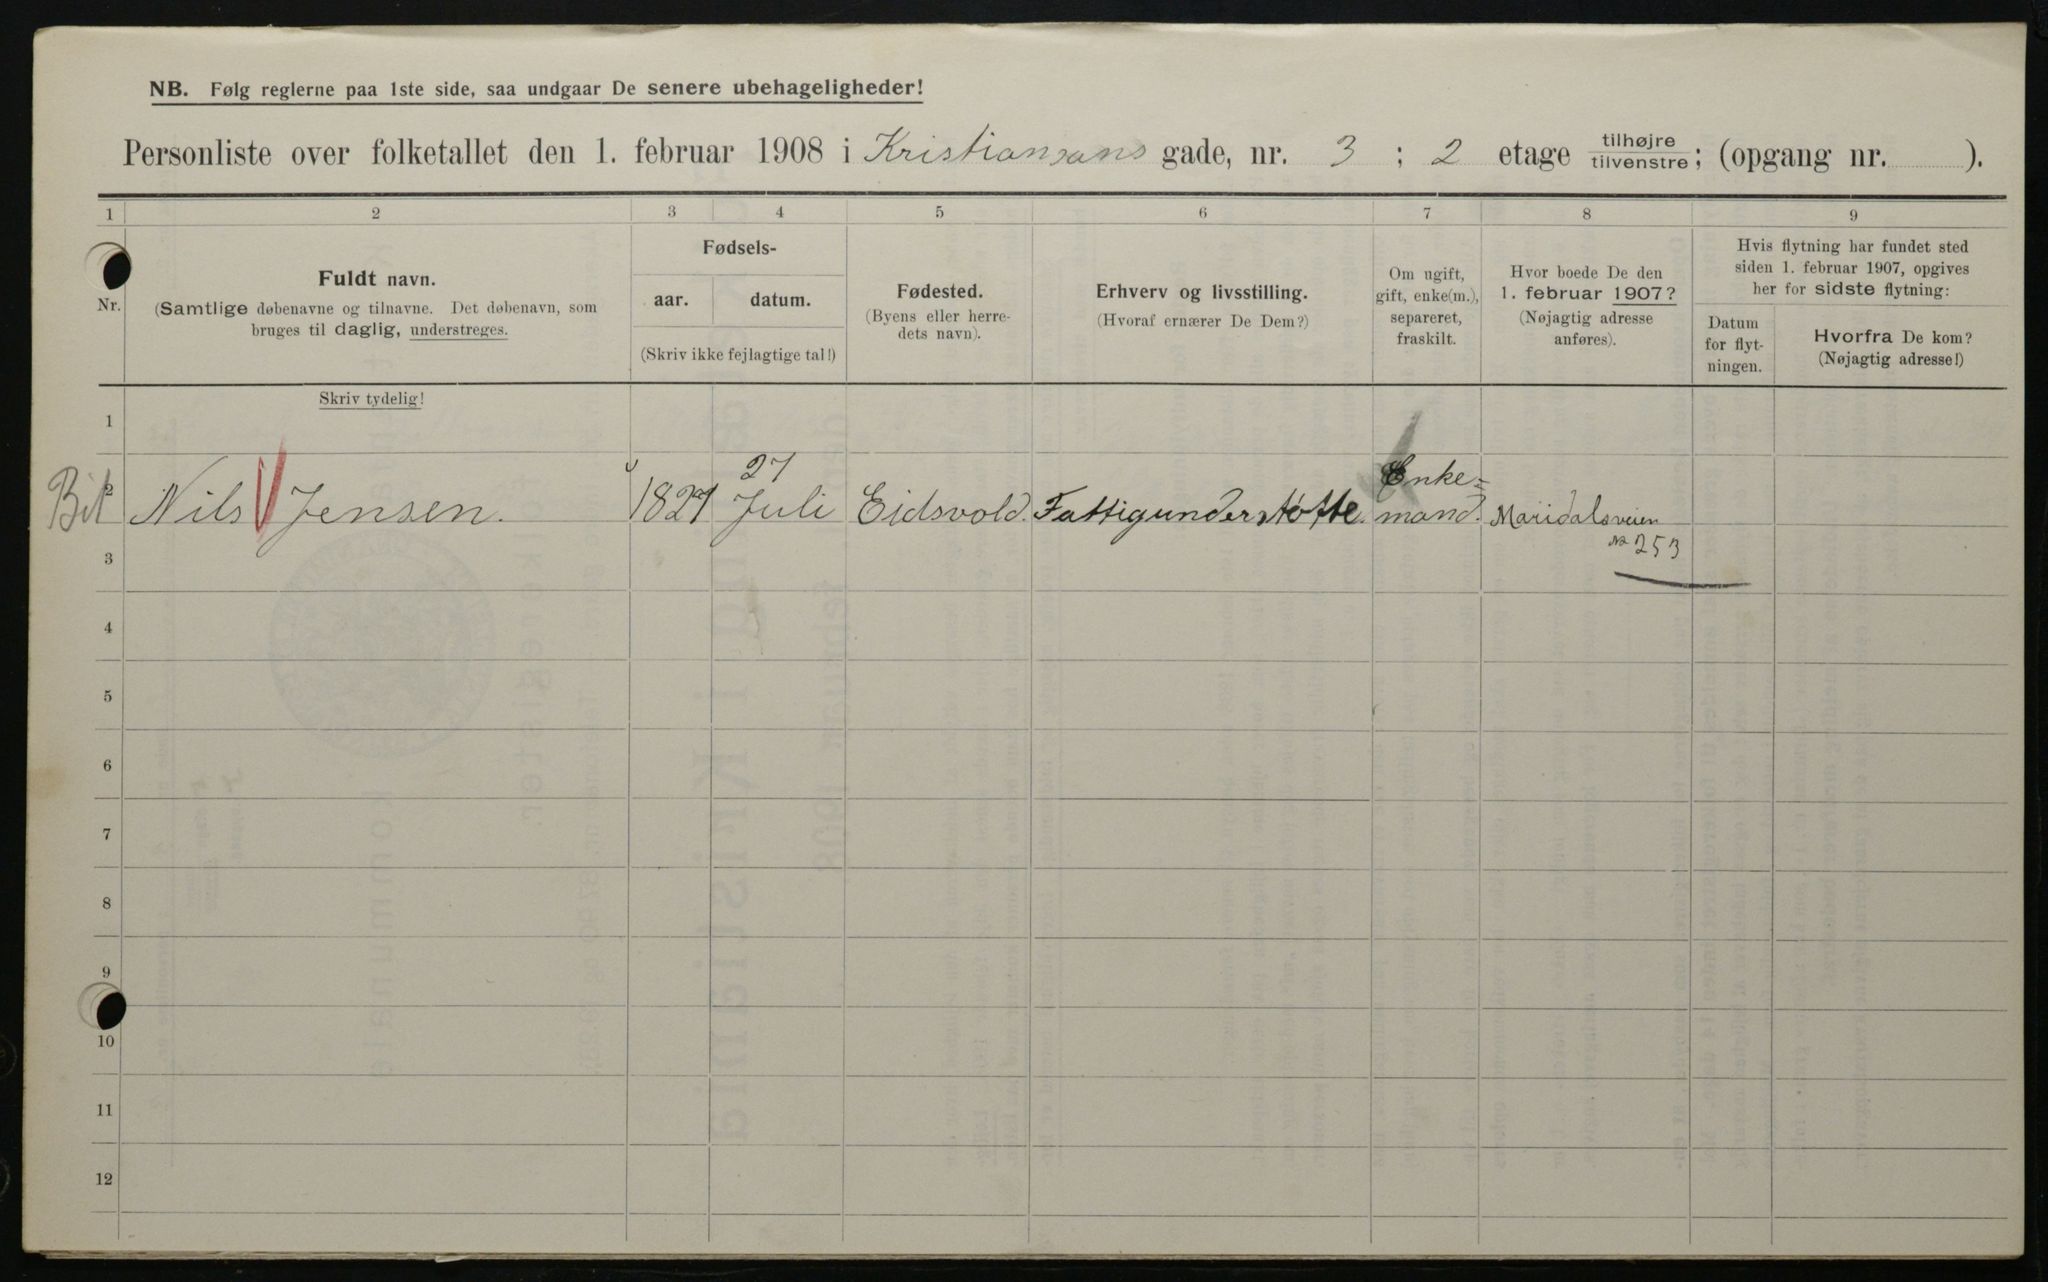 NB. Følg reglerne paa 1ste side, saa undgaar De senere ubehageligheder!
Personliste over folketallet den 1. februar 1908 i Kristiansans gade, nr. 3 ; 2 etage tilhøjre tilvenstre; (opgang nr. ).
1 2 3 4 5 6 7 8 9
Nr.
Fuldt navn.
(Samtlige døbenavne og tilnavne. Det døbenavn, som
bruges til daglig, understreges.
Fødsels-
aar. datum.
(Skriv ikke fejlagtige tal!)
Fødested.
(Byens eller herre-
dets navn).
Erhverv og livsstilling.
(Hvoraf ernærer De Dem?)
Om ugift,
gift, enke(m.),
separeret,
fraskilt.
Hvor boede De den
1. februar 1907?
(Nøjagtig adresse
anføres).
Hvis flytning har fundet sted
siden 1. februar 1907, opgives
her for sidste flytning:
Datum
for flyt-
ningen.
Hvorfra De kom?
(Nøjagtig adresse!)
Skriv tydelig!
1
27 Enke=
2 Nils Jensen. Juli Eidsvold. Fattigunderstøtte. mand. Maridalsveien
№ 253
3
4
5
6
7
8
9
10
11
12